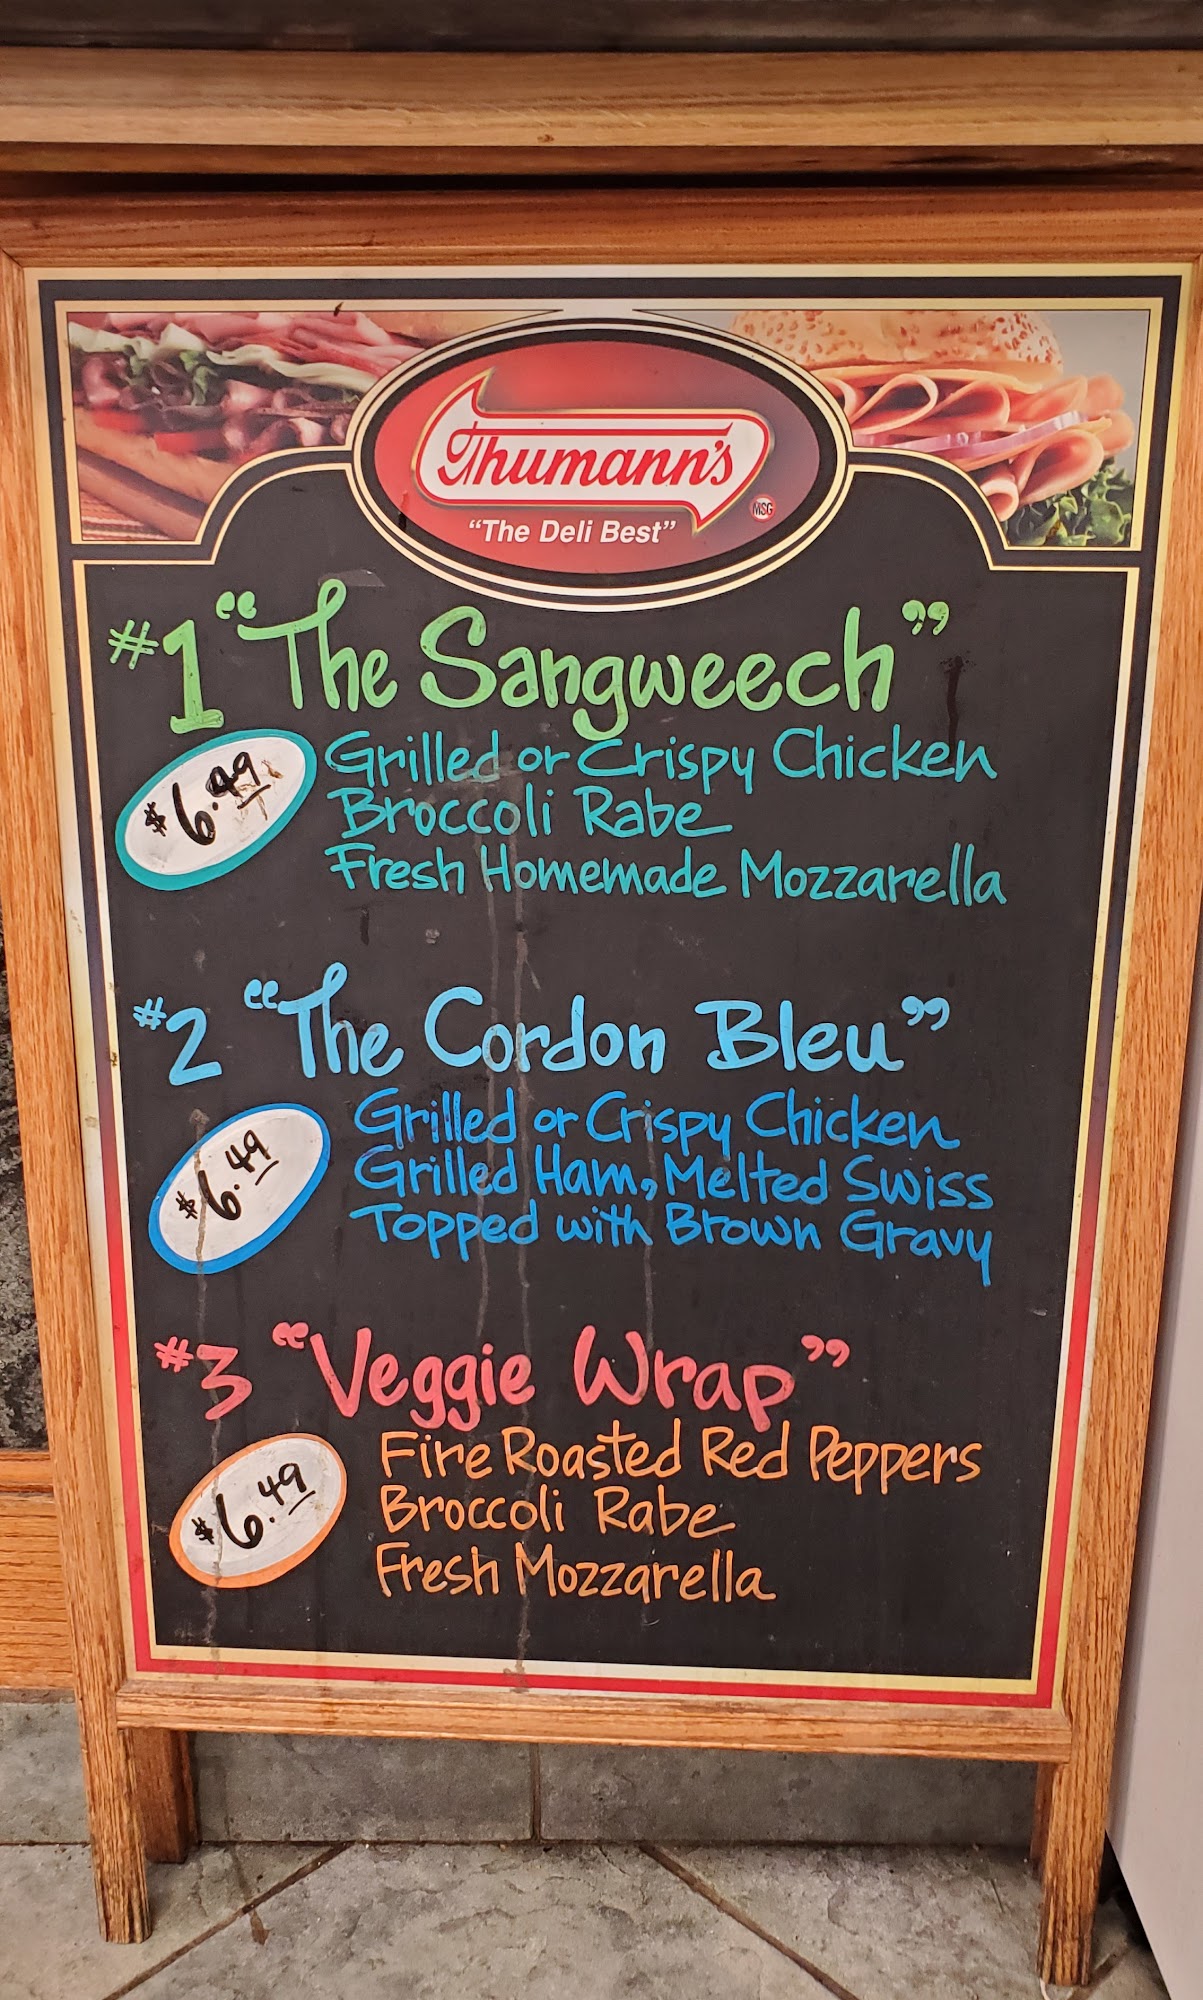 Thumann's
MSG
"The Deli Best"
#1 "The Sangweech"
$6.49
Grilled or Crispy Chicken
Broccoli Rabe
Fresh Homemade Mozzarella
#2 "The Cordon Bleu"
$6.49
Grilled or Crispy Chicken
Grilled Ham, Melted Swiss
Topped with Brown Gravy
#3 "Veggie Wrap"
$6.49
Fire Roasted Red Peppers
Broccoli Rabe
Fresh Mozzarella